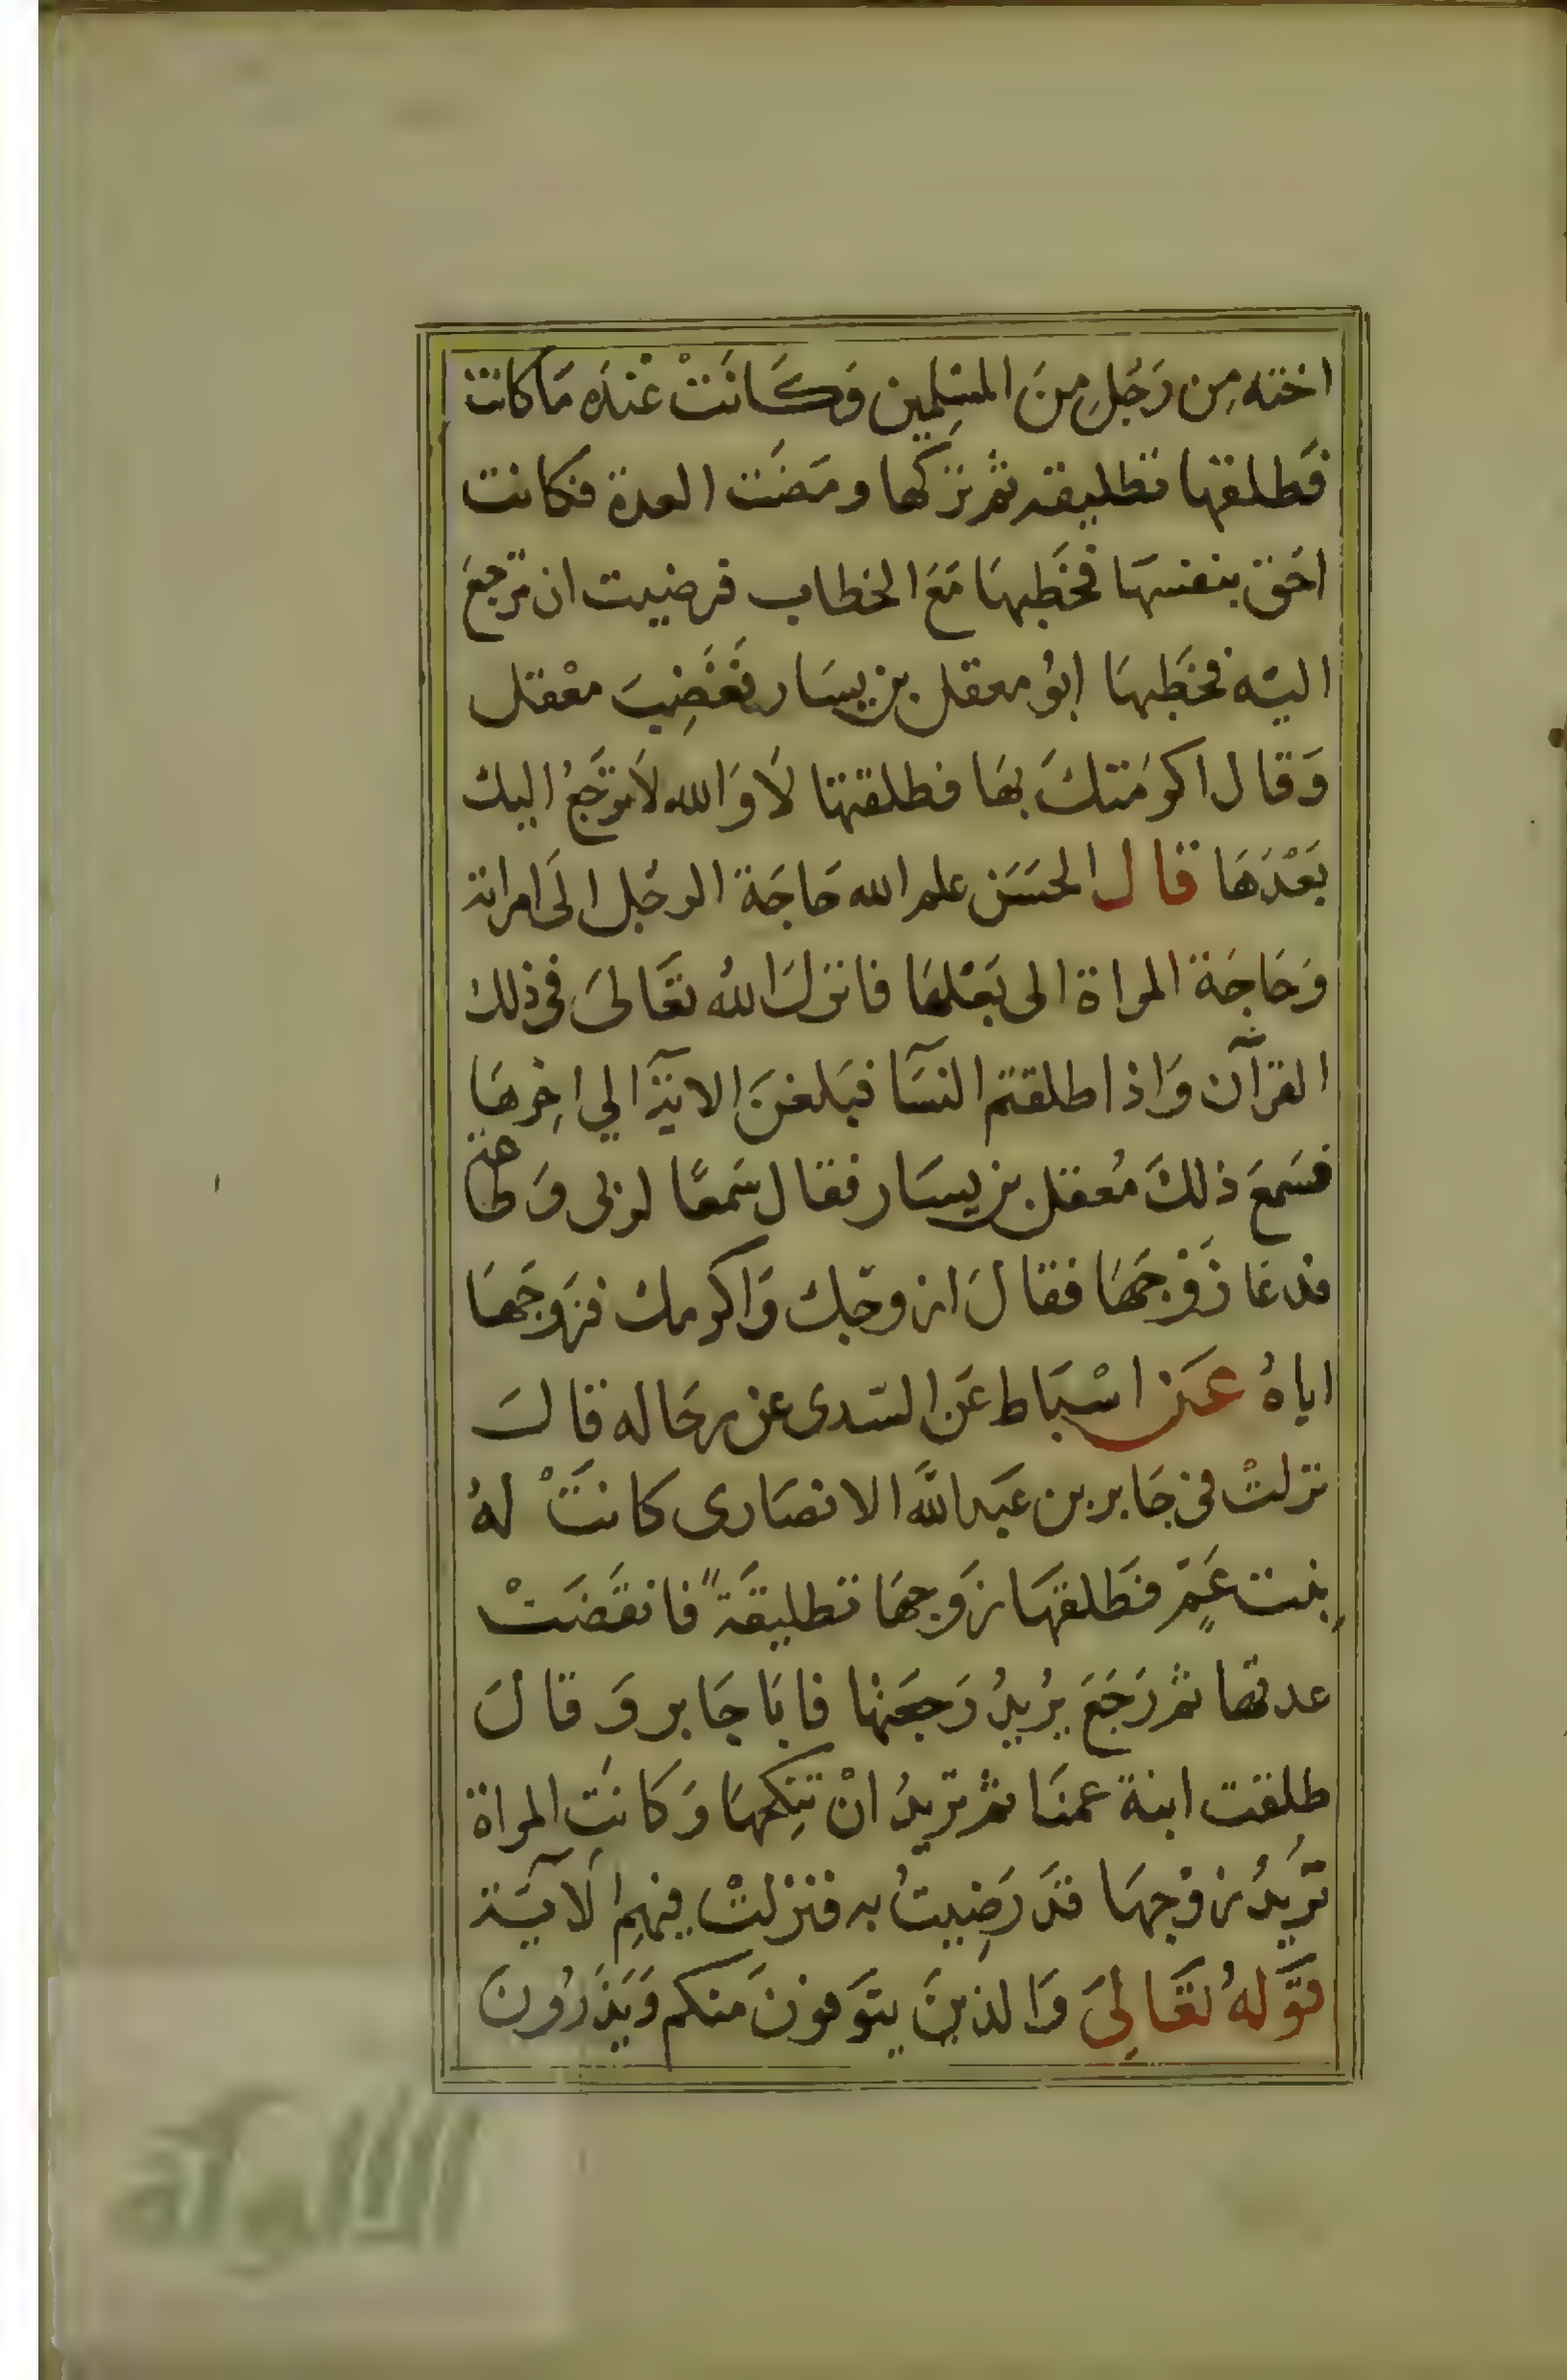 اخته مِن رَجُلٍ مِنَ المسْلِمين وَكَانَتْ عْنْدَه مَا كانت
فَطلقها تطليقة ثم تركها ومَضَت العدة فكانت
احَق بنفسهَا فخَطَبهَا مَعَ الخطاب فرضيت ان ترجعَ
اليْه فخَطَبهَا ابوُ معقل بن يسَار فغَضِبَ معْقل
وَقال اكرمَتكَ بهَا فطلقتها لَا وَالله لَا ترَجعُ اليك
بَعْدَهَا قال الحسَن علم الله حَاجَة الرجُل الَى امراته
وَحَاجَة المراة الى بَعْلهَا فانزلَ اللهُ تعَالىَ فى ذلك
القرآن وَاذا طلقتم النسَآ فبَلغنَ الايَة الي اخِرهَا
فسَمعَ ذلكَ مُعقل بن يسَار فقال سَمعًا لربى وَطاعة
فدعَا زَوْجهَا فقالَ ازوجك وَاكرمك فزَوجهَا
اياهُ عَن اسْبَاط عَن السّدى عن رجَاله قالَ
نزلتْ فى جَابر بن عَبد اللَّه الانصَارى كانَتْ لهُ
بِنت عَمٍّ فطَلقهَا زَوجهَا تطليقَةً فانقضَتْ
عدتها ثم رَجَعَ يرُيدُ رَجعَتها فابَا جَابر وَقالَ
طلقت ابنة عمنَا ثم تريدُ انْ تنِكحهَا وَكانَتِ المراة
ترُيدُ زوْجهَا قدَ رَضِيتُ به فنزلتْ فيهِم الَآيَة
قوَلهُ تعَالِىَ وَالذينَ يتَوَفونَ منكم وَيَذَرُونَ
الألوكة